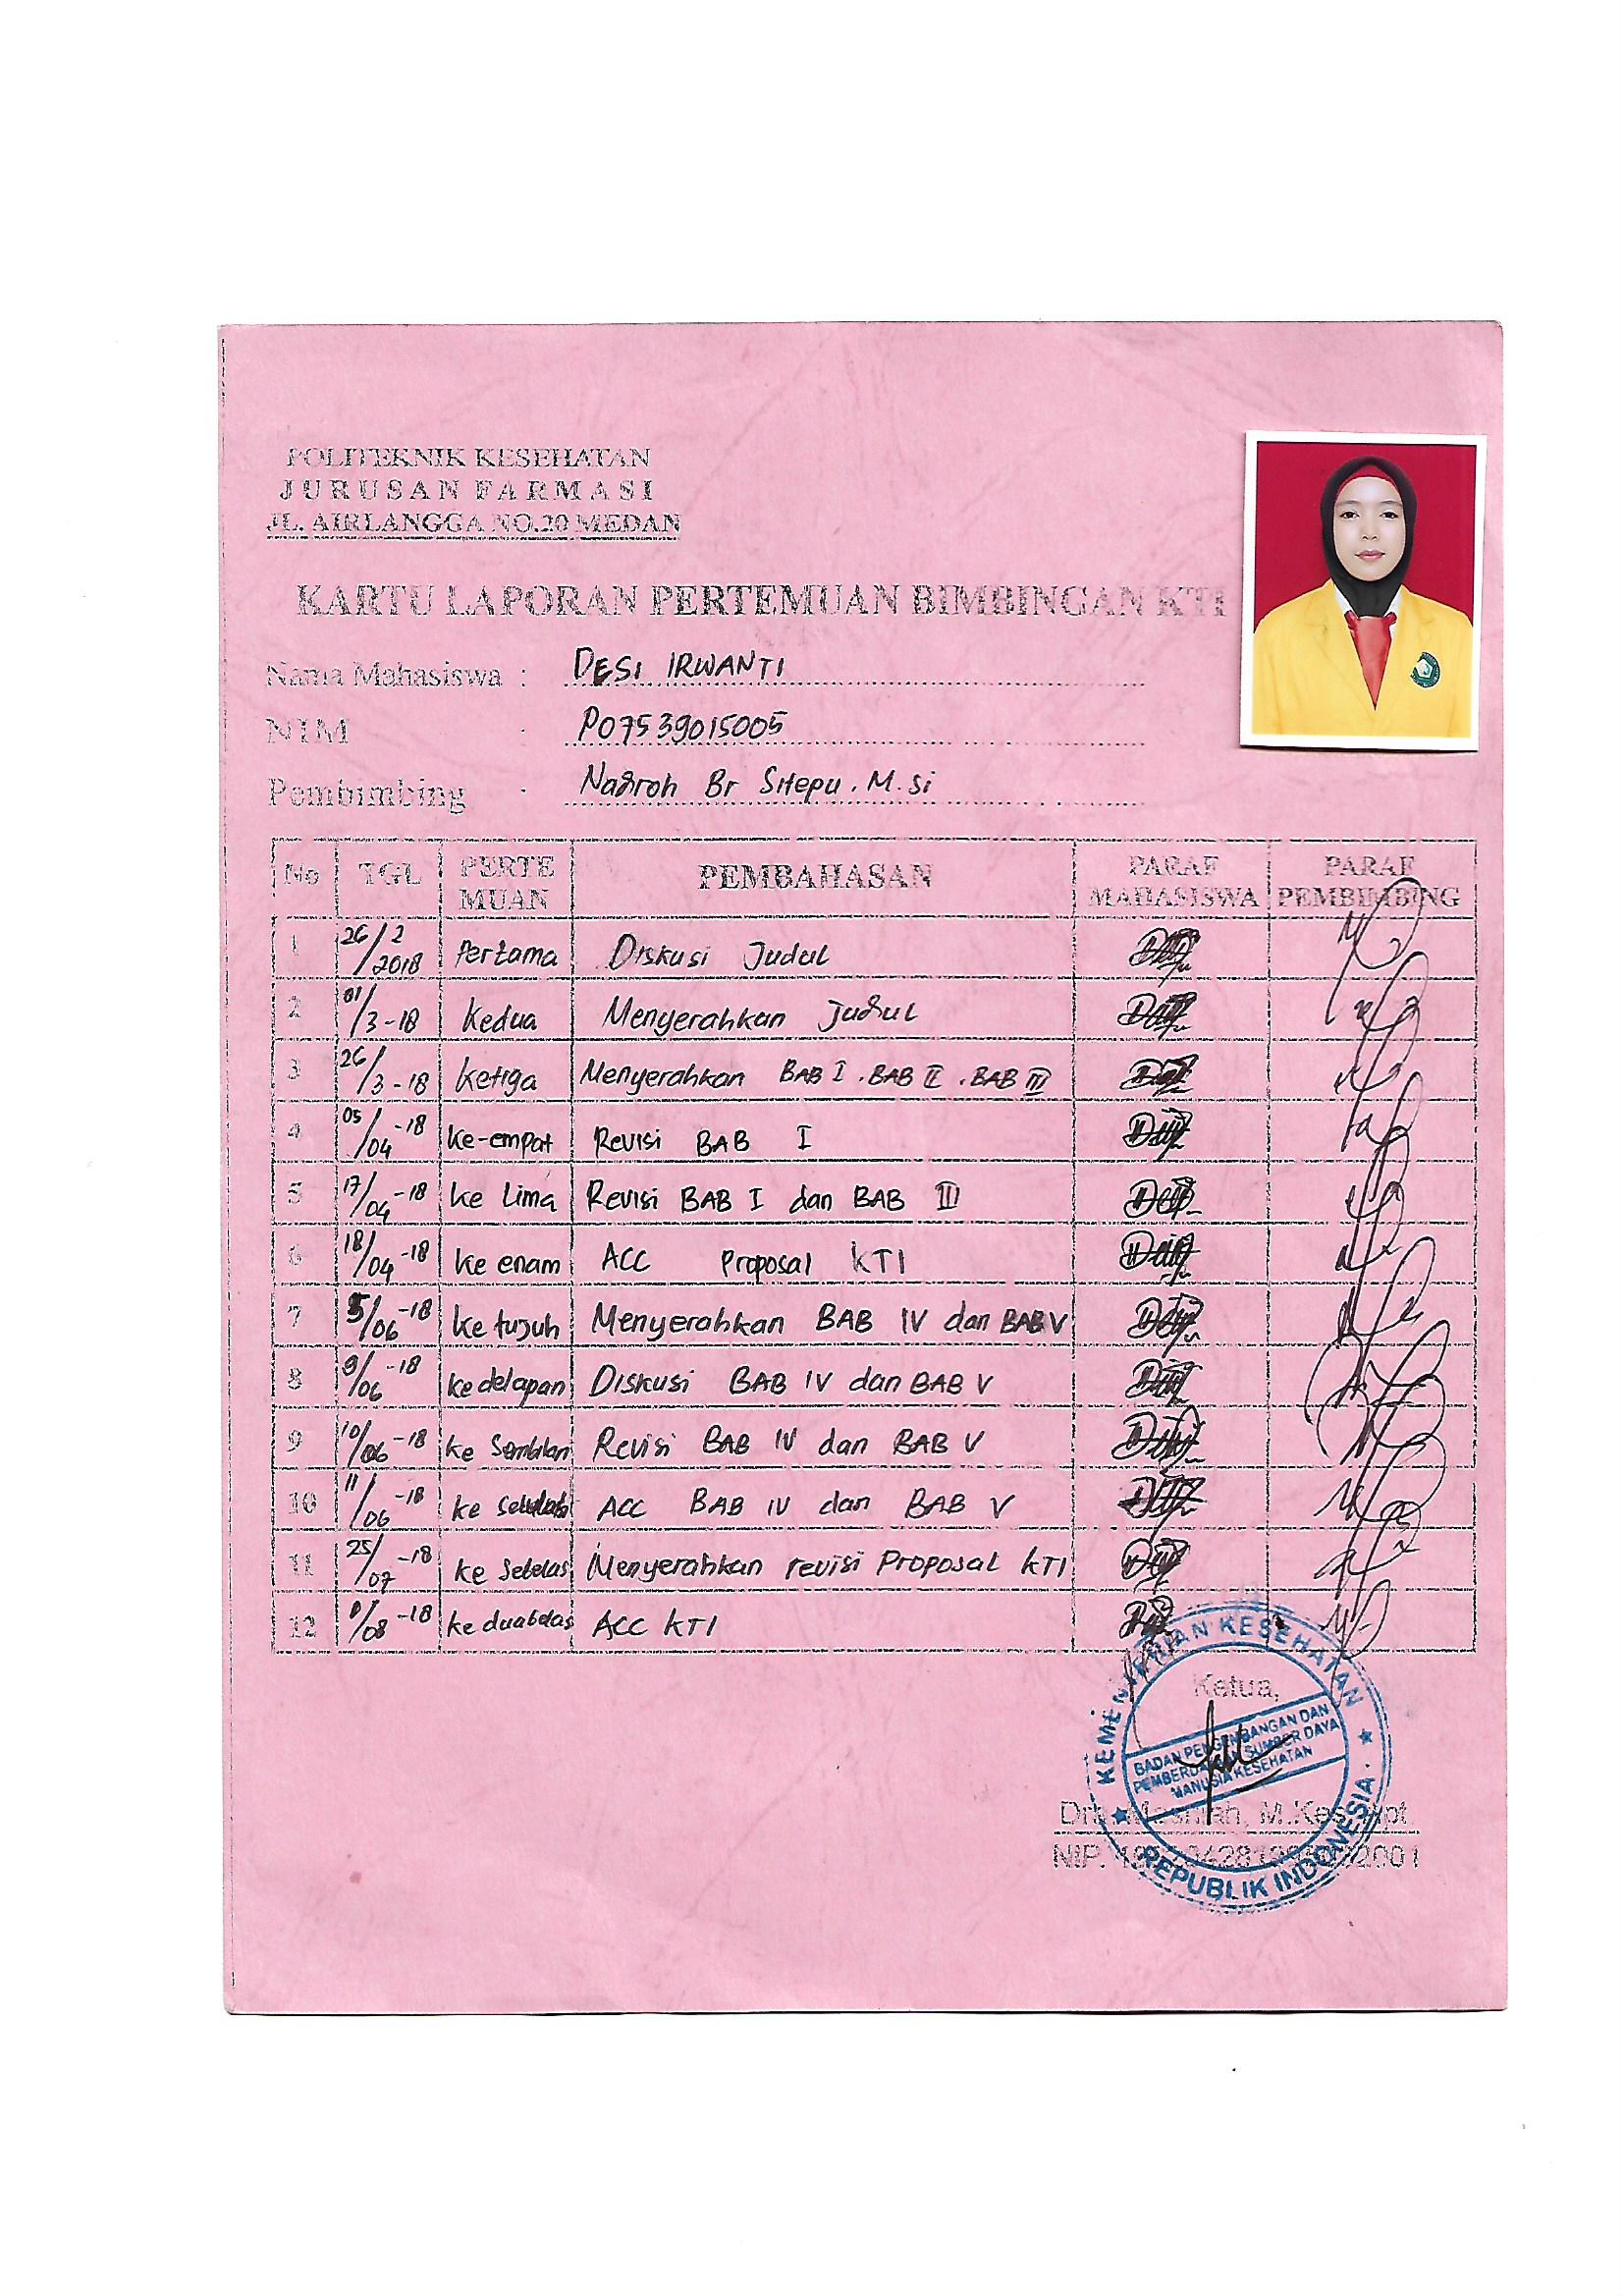 POLITEKNIK KESEHATAN
JURUSAN FARMASI
JL. AIRLANGGA NO.20 MEDAN
KARTU LAPORAN PERTEMUAN BIMBINGAN KTI
Nama Mahasiswa : DESI IRWANTI
NIM : P07539015005
Pembimbing : Nadroh Br Sitepu. M.Si
No TGL PERTE MUAN PEMBAHASAN PARAF MAHASISWA PARAF PEMBIMBING
1 26/2 2018 Pertama Diskusi Judul
2 01/3-18 Kedua Menyerahkan Judul
3 26/3-18 Ketiga Menyerahkan BAB I . BAB II . BAB III
4 05/04-18 ke-empat Revisi BAB I
5 17/04-18 ke lima Revisi BAB I dan BAB III
6 18/04-18 ke enam ACC Proposal KTI
7 5/06-18 ke tujuh Menyerahkan BAB IV dan BAB V
8 9/06-18 ke delapan Diskusi BAB IV dan BAB V
9 10/06-18 ke Sembilan Revisi BAB IV dan BAB V
10 11/06-18 ke ACC BAB IV dan BAB V
11 25/07-18 ke Sebelas Menyerahkan revisi Proposal KTI
12 /08-18 ke duabelas ACC KTI
KEMENTERIAN KESEHATAN
Ketua,
BADAN PENGEMBANGAN DAN
PEMBERDAYAAN SUMBER DAYA
MANUSIA KESEHATAN
Dra. Masniah, M.Kes, Apt
NIP.
REPUBLIK INDONESIA